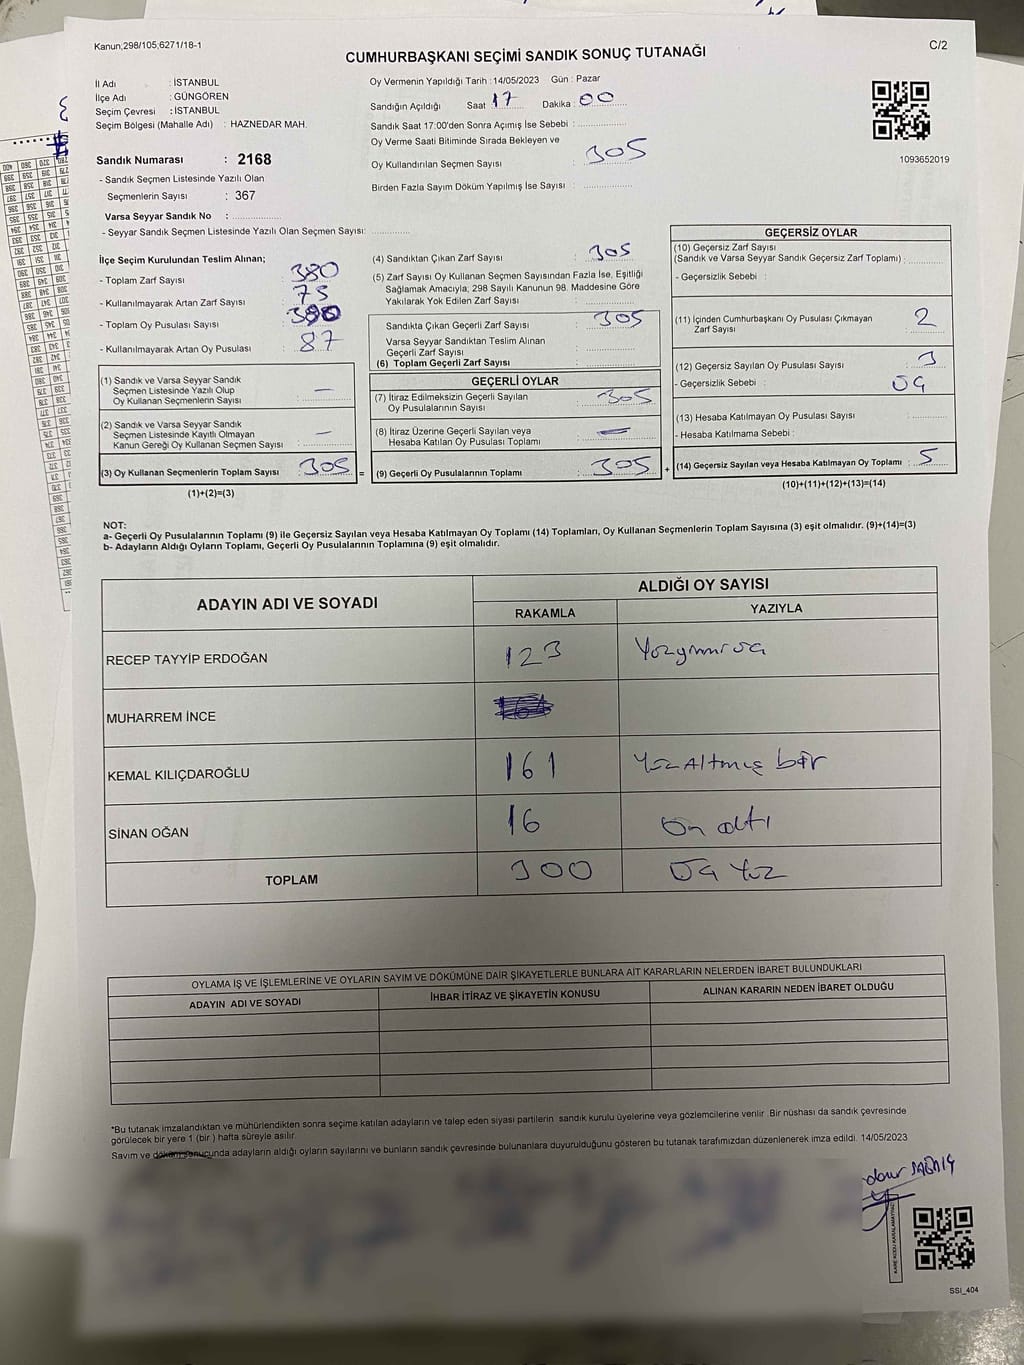 Kanun;298/105,6271/18-1
C/2
CUMHURBAŞKANI SEÇİMİ SANDIK SONUÇ TUTANAĞI
İl Adı : İSTANBUL
İlçe Adı : GÜNGÖREN
Seçim Çevresi : İSTANBUL
Seçim Bölgesi (Mahalle Adı) : HAZNEDAR MAH.
Sandık Numarası : 2168
- Sandık Seçmen Listesinde Yazılı Olan
Seçmenlerin Sayısı : 367
Varsa Seyyar Sandık No :
- Seyyar Sandık Seçmen Listesinde Yazılı Olan Seçmen Sayısı:
Oy Vermenin Yapıldığı Tarih : 14/05/2023 Gün : Pazar
Sandığın Açıldığı Saat 17 Dakika : 00
Sandık Saat 17:00'den Sonra Açımış İse Sebebi :
Oy Verme Saati Bitiminde Sırada Bekleyen ve
Oy Kullandırılan Seçmen Sayısı : 305
Birden Fazla Sayım Döküm Yapılmış İse Sayısı :
1093652019
İlçe Seçim Kurulundan Teslim Alınan;
- Toplam Zarf Sayısı : 380
- Kullanılmayarak Artan Zarf Sayısı : 75
- Toplam Oy Pusulası Sayısı : 390
- Kullanılmayarak Artan Oy Pusulası : 87
(1) Sandık ve Varsa Seyyar Sandık
Seçmen Listesinde Yazılı Olup
Oy Kullanan Seçmenlerin Sayısı : —
(2) Sandık ve Varsa Seyyar Sandık
Seçmen Listesinde Kayıtlı Olmayan
Kanun Gereği Oy Kullanan Seçmen Sayısı : —
(3) Oy Kullanan Seçmenlerin Toplam Sayısı : 305
(1)+(2)=(3)
(4) Sandıktan Çıkan Zarf Sayısı : 305
(5) Zarf Sayısı Oy Kullanan Seçmen Sayısından Fazla İse, Eşitliği
Sağlamak Amacıyla; 298 Sayılı Kanunun 98. Maddesine Göre
Yakılarak Yok Edilen Zarf Sayısı :
Sandıkta Çıkan Geçerli Zarf Sayısı : 305
Varsa Seyyar Sandıktan Teslim Alınan
Geçerli Zarf Sayısı :
(6) Toplam Geçerli Zarf Sayısı :
=
GEÇERLİ OYLAR
(7) İtiraz Edilmeksizin Geçerli Sayılan
Oy Pusulalarının Sayısı : 305
(8) İtiraz Üzerine Geçerli Sayılan veya
Hesaba Katılan Oy Pusulası Toplamı : —
(9) Geçerli Oy Pusulalarının Toplamı : 305
+
GEÇERSİZ OYLAR
(10) Geçersiz Zarf Sayısı
(Sandık ve Varsa Seyyar Sandık Geçersiz Zarf Toplamı) :
- Geçersizlik Sebebi :
(11) İçinden Cumhurbaşkanı Oy Pusulası Çıkmayan
Zarf Sayısı : 2
(12) Geçersiz Sayılan Oy Pusulası Sayısı : 3
- Geçersizlik Sebebi : Üç
(13) Hesaba Katılmayan Oy Pusulası Sayısı :
- Hesaba Katılmama Sebebi :
(14) Geçersiz Sayılan veya Hesaba Katılmayan Oy Toplamı : 5
(10)+(11)+(12)+(13)=(14)
NOT:
a- Geçerli Oy Pusulalarının Toplamı (9) ile Geçersiz Sayılan veya Hesaba Katılmayan Oy Toplamı (14) Toplamları, Oy Kullanan Seçmenlerin Toplam Sayısına (3) eşit olmalıdır. (9)+(14)=(3)
b- Adayların Aldığı Oyların Toplamı, Geçerli Oy Pusulalarının Toplamına (9) eşit olmalıdır.
ADAYIN ADI VE SOYADI
ALDIĞI OY SAYISI
RAKAMLA YAZIYLA
RECEP TAYYİP ERDOĞAN 123
MUHARREM İNCE
KEMAL KILIÇDAROĞLU 161 Yüz Altmış bir
SİNAN OĞAN 16 On altı
TOPLAM 300 Üç Yüz
OYLAMA İŞ VE İŞLEMLERİNE VE OYLARIN SAYIM VE DÖKÜMÜNE DAİR ŞİKAYETLERLE BUNLARA AİT KARARLARIN NELERDEN İBARET BULUNDUKLARI
ADAYIN ADI VE SOYADI
İHBAR İTİRAZ VE ŞİKAYETİN KONUSU
ALINAN KARARIN NEDEN İBARET OLDUĞU
*Bu tutanak imzalandıktan ve mühürlendikten sonra seçime katılan adayların ve talep eden siyasi partilerin sandık kurulu üyelerine veya gözlemcilerine verilir .Bir nüshası da sandık çevresinde
görülecek bir yere 1 (bir ) hafta süreyle asılır.
Sayım ve döküm sonucunda adayların aldığı oyların sayılarını ve bunların sandık çevresinde bulunanlara duyurulduğunu gösteren bu tutanak tarafımızdan düzenlenerek imza edildi. 14/05/2023
KARE KODU KARALAMAYINIZ
SSİ_404